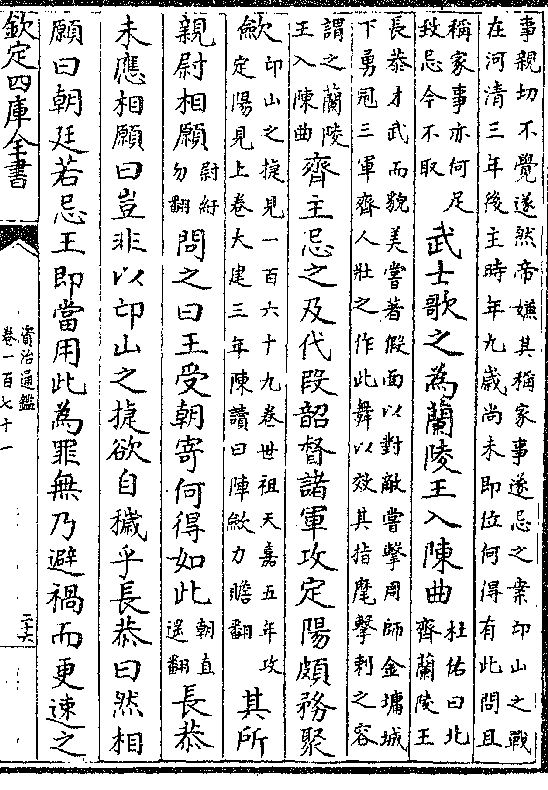 事親切不覺遂然帝嫌其稱家事遂忌之案卬山之戰
在河清三年後主時年九歲尚未即位何得有此問且
稱家事亦何足
致忌今不取
武士歌之為蘭陵王入陳曲
杜佑曰北
齊蘭陵王
長恭才武而貌美嘗著假面以對敵嘗擊周師金墉城
下勇冠三軍齊人壯之作此舞以效其指麾擊刺之容
謂之蘭陵
王入陳曲
齊主忌之及代段韶督諸軍攻定陽頗務聚
斂
卬山之捷見一百六十九卷世祖天嘉五年攻
定陽見上卷大建三年陳讀曰陣斂力贍翻
其所
親尉相願
尉紆
勿翻
問之曰王受朝寄何得如此
朝直
遥翻
長恭
未應相願曰豈非以卬山之捷欲自穢乎長恭曰然相
願曰朝廷若忌王即當用此為罪無乃避禍而更速之
欽定四庫全書
資治通鑑
卷一百七十一
二十六